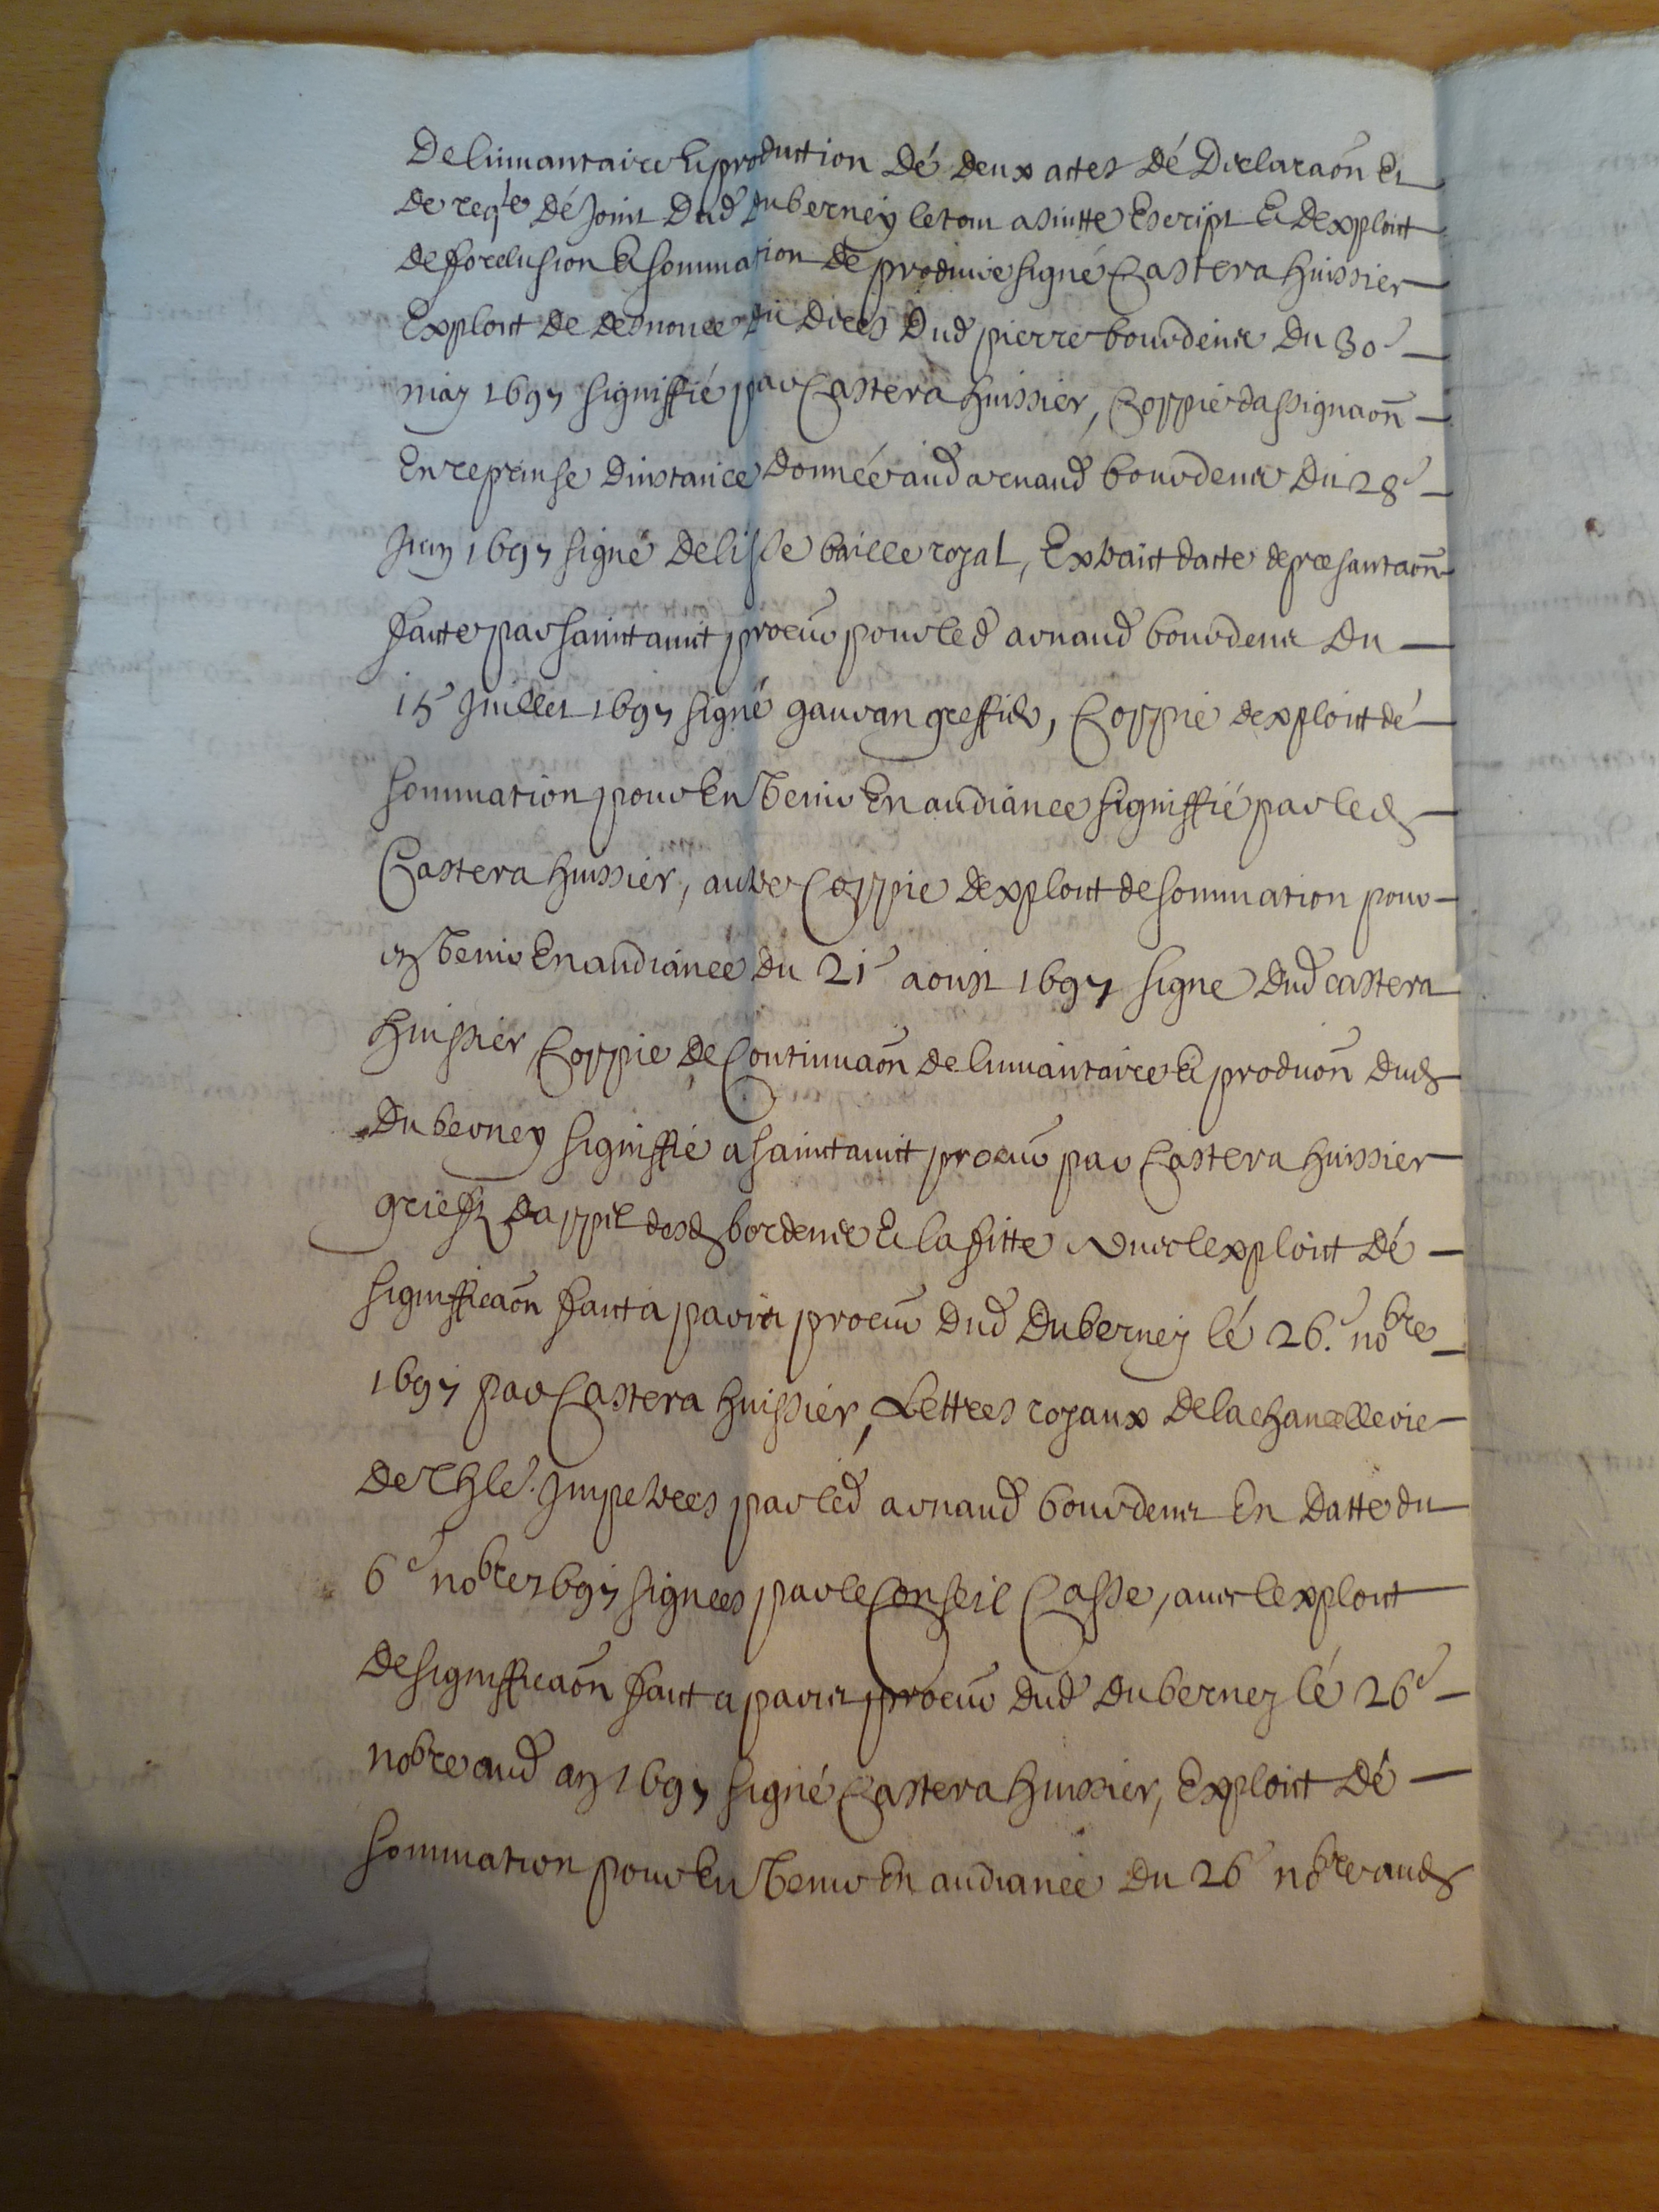 De linvantaire & production dé deux actes dé Declaraôn et
de reqte dé Joint dud duberney le tout a suitte escript & dexploit
de forclusion & sommation de produire signé Castera huissier
Exploit de desnonce du deces dud pierre bourdenx du 30e
may 1697 signiffié par Castera huissier, Coppie dassignaôn
En reprinse dinstance donnée aud arnaud bourdenx du 28e
Juin 1697 signé Delisle baille royal, Extraict dacte de presantaôn
faitte par saintavit procur pour led arnaud bourdenx du
15e Juillet 1697 signé gauvan greffier, Coppie dexploit dé
sommation pour En Venir En audiance signiffié par led
Castera huissier, autre Coppie dexploit de sommation pour
en Venir En audiance du 21e aoust 1697 signe dud castera
huissier Coppie de Continuaôn de linvantaire & produôn dud
Duberney signiffié a saintavit procur par Castera huissier
griefz dappel desd bordenx & lafitte avec lexploit dé
signifficaôn fait a procur dud Duberney lé 26e nobre
1697 par Castera huissier, Lettres royaux de la chancellerie
de Thle Impetrees par led arnaud bourdenx En datte du
6e nobre 1697 signees par le Conseil Casse, avec lexploit
de signifficaôn fait a procur dud Duberney lé 26e
nobre aud an 1697 signé Castera huissier, Exploit dé
sommation pour En Venir En audiance du 26e nobre aud